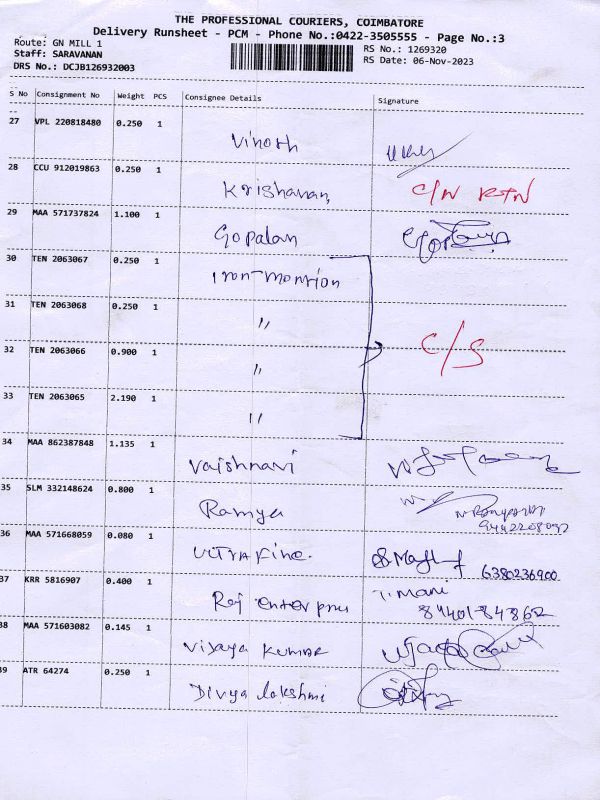 THE PROFESSIONAL COURIERS, COIMBATORE
Delivery Runsheet - PCM - Phone No.:0422-3505555 - Page No.:3
Route: GN MILL 1 RS No.: 1269320
Staff: SARAVANAN RS Date: 06-Nov-2023
DRS No.: DCJB126932003
S No Consignment No Weight PCS Consignee Details Signature
27 VPL 220818480 0.250 1 Vinoth
28 CCU 912019863 0.250 1 Krishanan, C/N RTN
29 MAA 571737824 1.100 1 Gopalan
30 TEN 2063067 0.250 1 Iron-mountion
31 TEN 2063068 0.250 1 "
32 TEN 2063066 0.900 1 " C/S
33 TEN 2063065 2.190 1 "
34 MAA 862387848 1.135 1 Vaishnavi
35 SLM 332148624 0.800 1 Ramya
36 MAA 571668059 0.080 1 Ultra Fine. 6380236900
37 KRR 5816907 0.400 1 Raj enterprises T. Mani
38 MAA 571603082 0.145 1 Vijaya Kumar
39 ATR 64274 0.250 1 Divya lakshmi